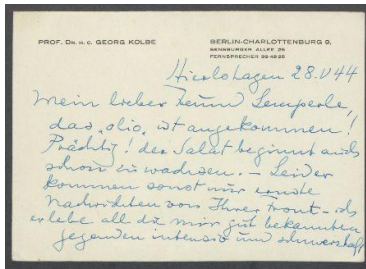 PROF. DR. H. C. GEORG KOLBE
BERLIN-CHARLOTTENBURG 9,
SENSBURGER ALLEE 25
FERNSPRECHER
28.V 44
Mein lieber Freund Lemperle,
das „olio“ ist angekommen!
Prächtig! der Salat beginnt auch
schon zu wachsen. – Leider
kommen sonst nur ernste
Nachrichten von Ihrer Front – ich
erlebe all die mir gut bekannten
Gegenden intensiv und schmerzhaft